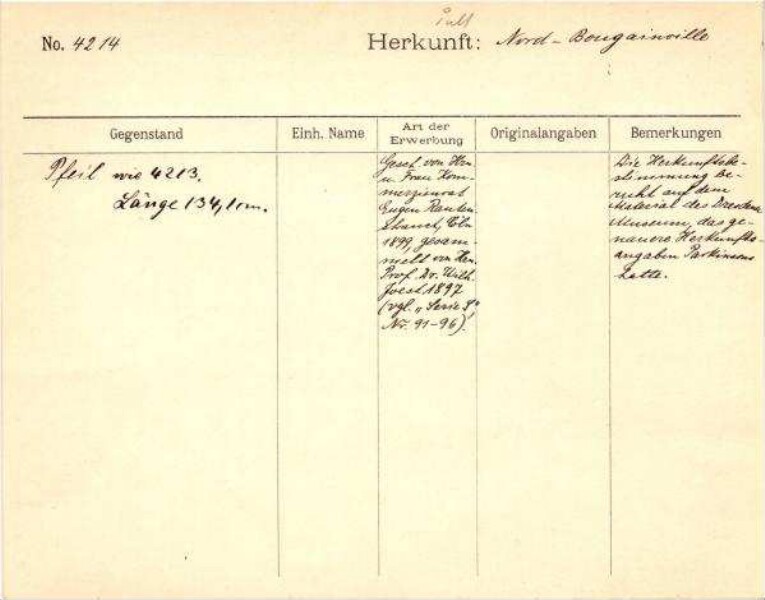 No. 4214
Herkunft: Nord-Bougainville
Gegenstand
Einh. Name
Art der Erwerbung
Originalangaben
Bemerkungen
Pfeil wie 4213.
Länge 134,1 cm.
Gesch. von Hrn
u. Frau Kom-
merzienrat
Eugen Rauten-
strauch, Cöln
1899, gesam-
melt von Hrn.
Prof. Dr. Wilh.
Joest 1897
(vgl. „Serie S",
Nr. 91-96).
Die Herkunftsbe-
stimmung be-
ruht auf dem
Material des Dresdener
Museum, das ge-
nauere Herkunfts-
angaben Parkinsons
hatte.